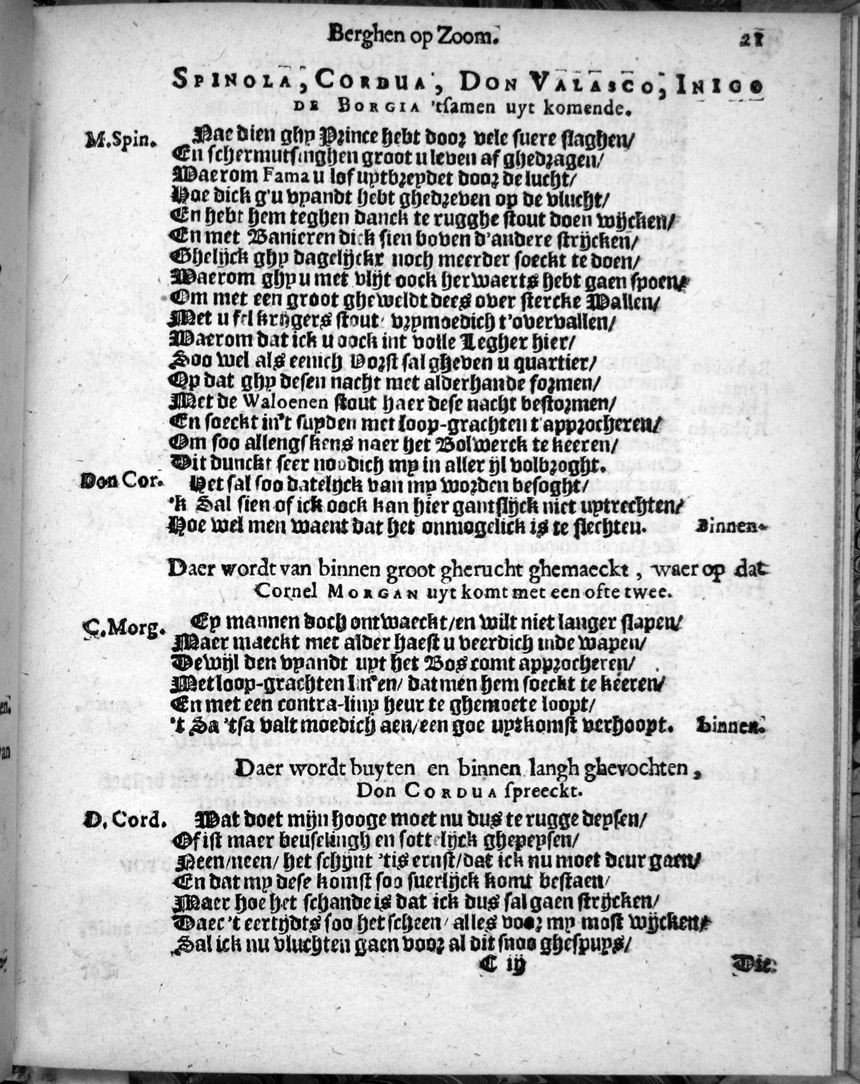 Berghen op Zoom. 21
SPINOLA, CORDUA, DON VALASCO, INIGO
DE BORGIA 'tſamen uyt komende.
M.Spin. Nae dien ghy Prince hebt door vele ſuere ſlaghen/
En ſchermutſinghen groot u leven af ghedragen/
Waerom Fama u lof uytbreydet door de lucht/
Hoe dick g'u vyandt hebt ghedreven op de vlucht/
En hebt hem teghen danck te rugghe ſtout doen wijcken/
En met Banieren dick ſien boven d'andere ſtrijcken/
Ghelijck ghy dagelijckx noch meerder ſoeckt te doen/
Waerom ghy u met vlijt oock herwaerts hebt gaen ſpoen/
Om met een groot gheweldt dees over ſtercke Wallen/
Met u fel krijgers ſtout/ vrymoedich t'overvallen/
Waerom dat ick u oock int volle Legher hier/
Soo wel als eenich Vorſt ſal gheven u quartier/
Op dat ghy deſen nacht met alderhande formen/
Met de Waloenen ſtout haer deſe nacht beſtormen/
En ſoeckt in't ſuyden met loop-grachten t'approcheren/
Om ſoo allengſkens naer het Bolwerck te keeren/
Dit dunckt ſeer noodich my in aller ijl volbroght.
Don Cor. Het ſal ſoo datelijck van my worden beſoght/
'k Sal ſien of ick oock kan hier gantſlijck niet uytrechten/
Hoe wel men waent dat het onmogelick is te ſlechten. Binnen.
Daer wordt van binnen groot gherucht ghemaeckt, waer op dat
Cornel MORGAN uyt komt met een ofte twee.
C.Morg. Ey mannen doch ontwaeckt/en wilt niet langer ſlapen/
Maer maeckt met alder haeſt u veerdich inde wapen/
Dewijl den vyandt uyt het Bos comt approcheren/
Met loop-grachten linien/ dat men hem ſoeckt te keeren/
En met een contra-liny heur te ghemoete loopt/
't Sa 'tſa valt moedich aen/een goe uytkomſt verhoopt. Binnen.
Daer wordt buyten en binnen langh ghevochten,
Don CORDUA ſpreeckt.
D. Cord. Wat doet mijn hooge moet nu dus te rugge deyſen/
Of iſt maer beuſelingh en ſottelijck ghepeyſen/
Neen/neen/ het ſchijnt 'tis ernſt/dat ick nu moet deur gaen/
En dat my deſe komſt ſoo ſuerlijck komt beſtaen/
Maer hoe het ſchande is dat ick dus ſal gaen ſtrijcken/
Daer 't eertijdts ſoo het ſcheen/ alles voor my moſt wijcken/
Sal ick nu vluchten gaen voor al dit ſnoo gheſpuys/
C iij Die